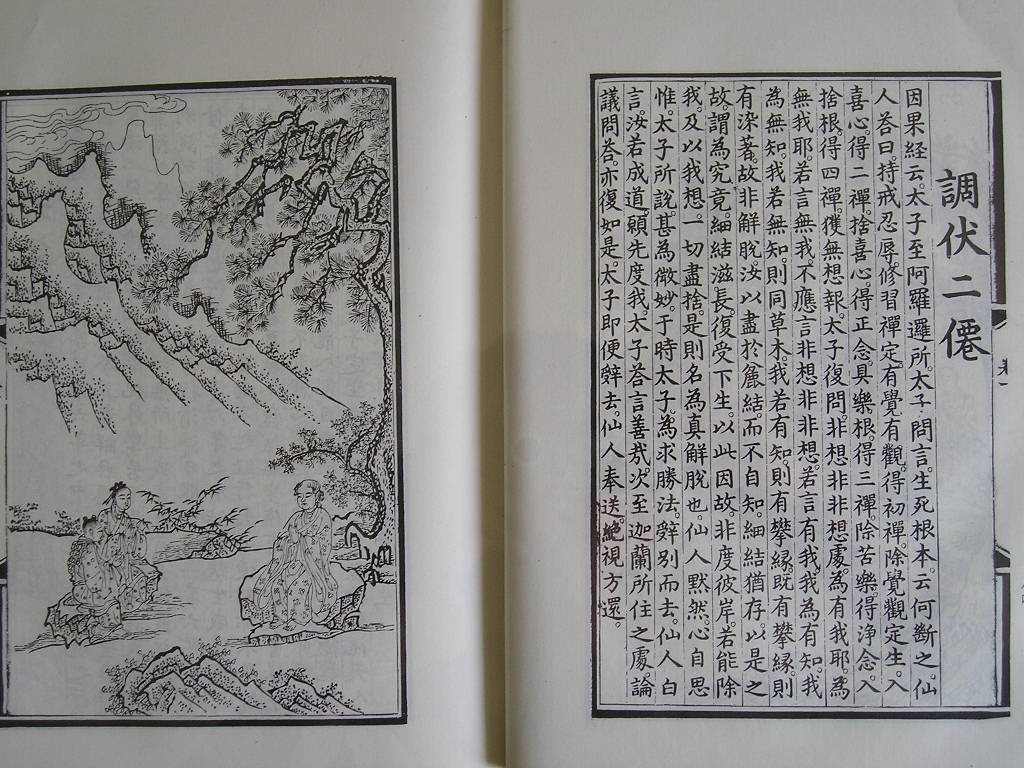 調伏二僊
因果經云。太子至阿羅邏所。太子問言。生死根本。云何斷之。仙
人答曰。持戒忍辱。修習禪定。有覺有觀。得初禪。除覺觀定生。入
喜心。得二禪。捨喜心。得正念。具樂根。得三禪。除苦樂。得淨念。入
捨根。得四禪。獲無想報。太子復問。非想非非想處。為有我耶。為
無我耶。若言無我。不應言非想非非想。若言有我。我為有知。我
為無知。我若無知。則同草木。我若有知。則有攀緣。既有攀緣。則
有染著。故非解脫。汝以盡於麁結。而不自知。細結猶存。以是之
故。謂為究竟。細結滋長。復受下生。以此因故。非度彼岸。若能除
我。及以我想。一切盡捨。是則名為真解脫也。仙人默然。心自思
惟。太子所說。甚為微妙。于時太子。為求勝法。辭別而去。仙人白
言。汝若成道。願先度我。太子答言善哉。次至迦蘭所住之處。論
議問答。亦復如是。太子即便辭去。仙人奉送。絕視方還。
卷一